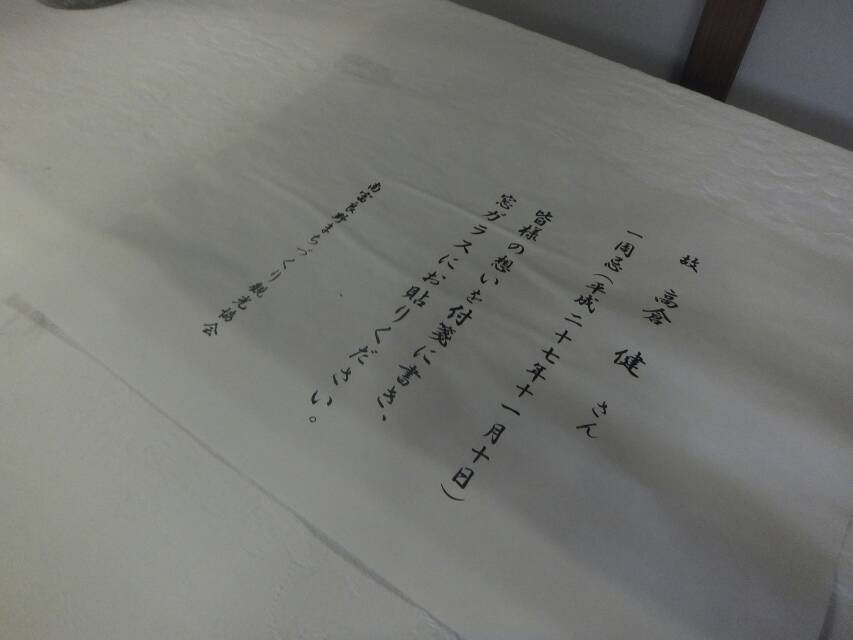 故 高倉 健 さん
一周忌(平成二十七年十一月十日)
皆様の想いを付箋に書き、
窓ガラスにお貼りください。
南富良野まちづくり観光協会